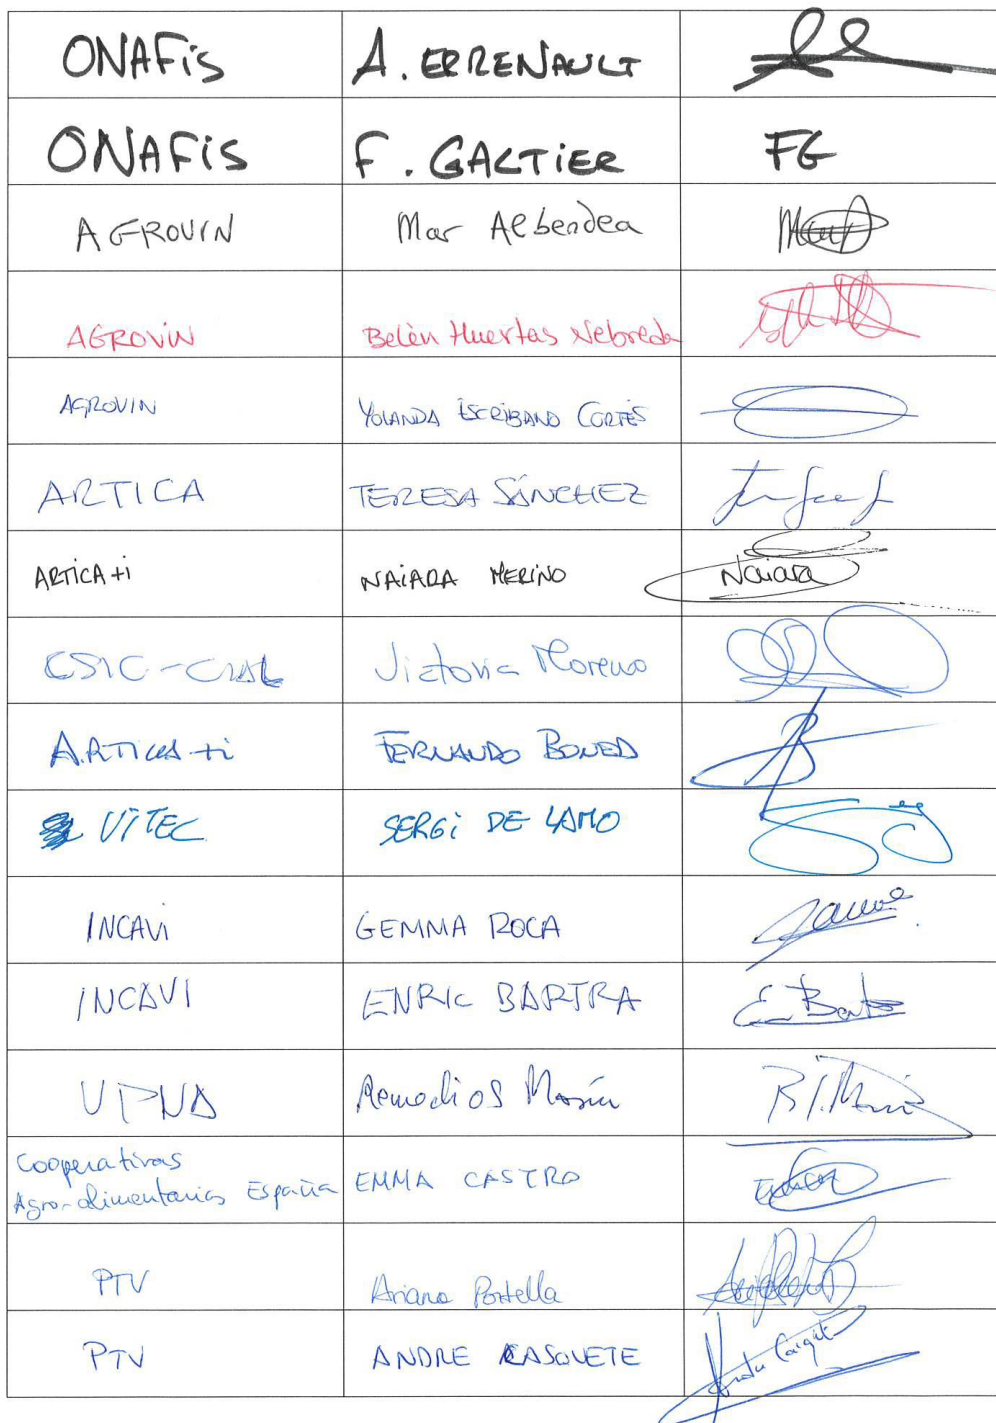 ONAFiS A. ERRENAULT
ONAFiS F. GALTIER FG
AGROVIN Mar Albendea
AGROVIN Belén Huertas Nebreda
AGROVIN YOLANDA ESCRIBANO CORTÉS
ARTICA TERESA SÁNCHEZ
ARTICA +i NAIARA MERINO Naiara
CSIC - CIAL Victoria Moreno
ARTICA +i FERNANDO BONED
VITEC SERGi DE LAMO
INCAVI GEMMA ROCA
INCAVI ENRIC BARTRA
UPNA Remedios Marín
Cooperativas
Agro-alimentarias España EMMA CASTRO
PTV Ariana Portella
PTV ANDRE CASQUETE